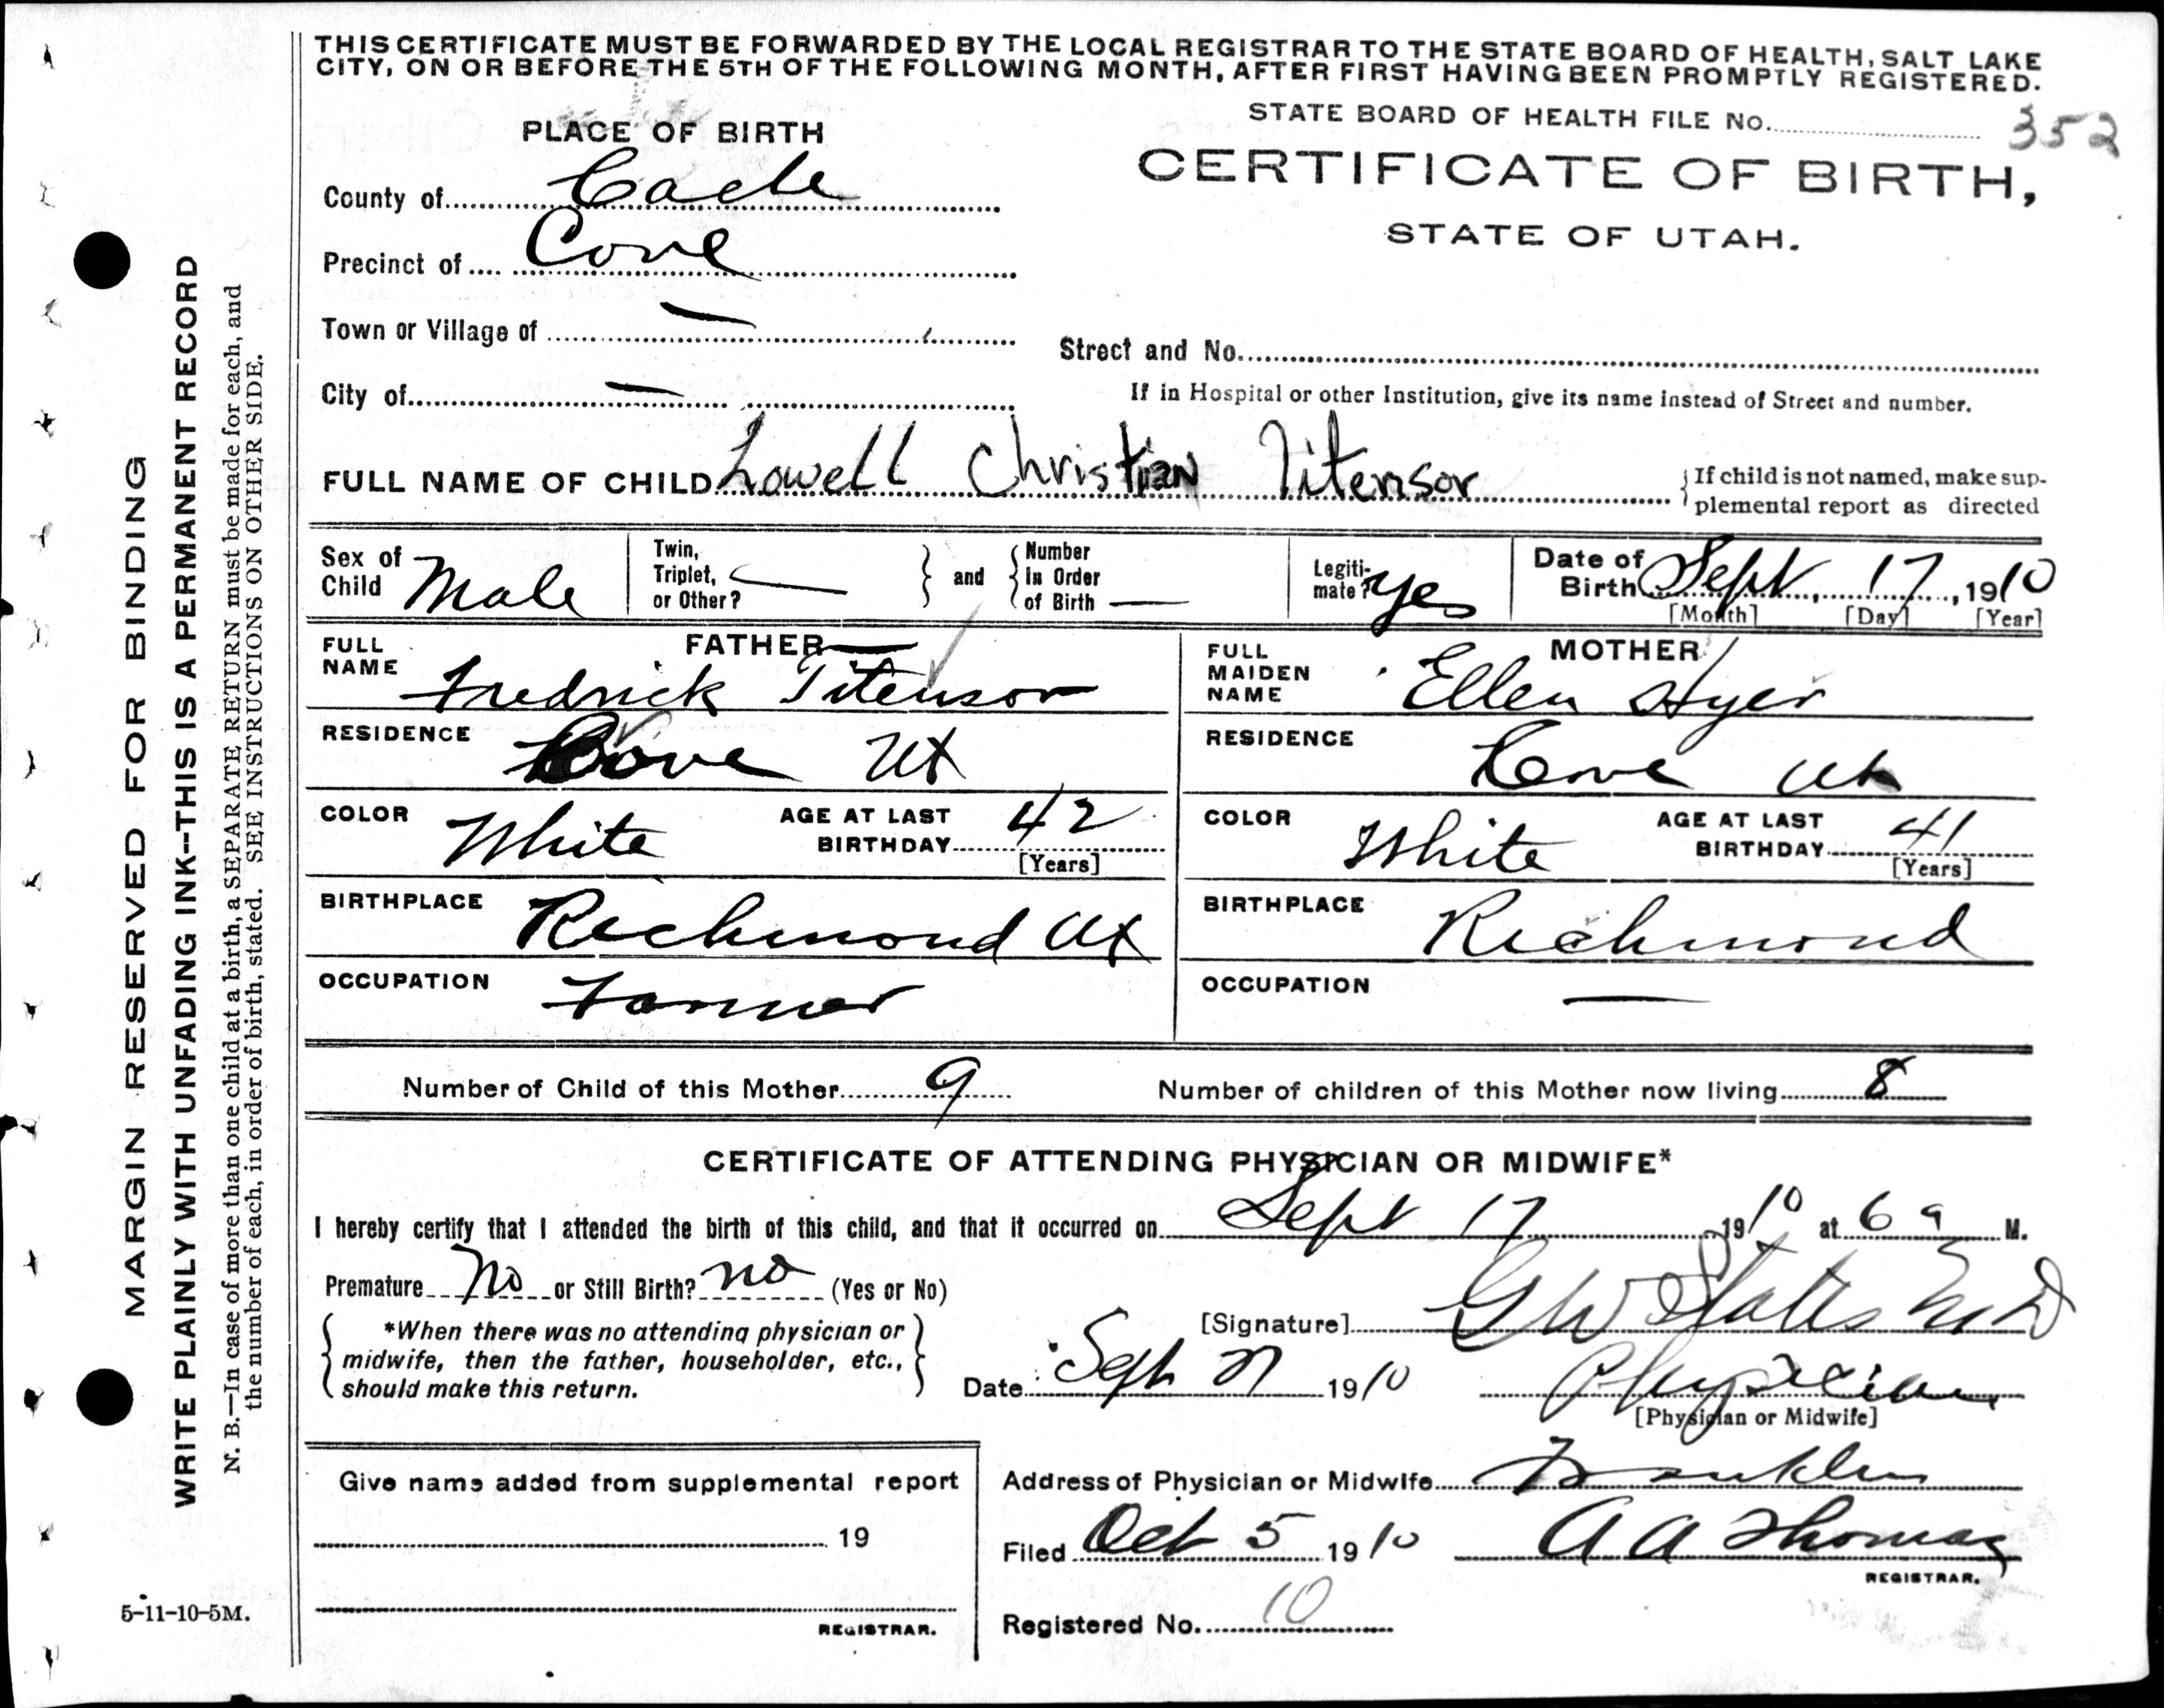 THIS CERTIFICATE MUST BE FORWARDED BY THE LOCAL REGISTRAR TO THE STATE BOARD OF HEALTH, SALT LAKE
CITY, ON OR BEFORE THE 5TH OF THE FOLLOWING MONTH, AFTER FIRST HAVING BEEN PROMPTLY REGISTERED.
STATE BOARD OF HEALTH FILE No. 352
PLACE OF BIRTH
CERTIFICATE OF BIRTH,
STATE OF UTAH.
County of Cache
Precinct of Cove
Town or Village of —
Street and No.
City of —
If in Hospital or other Institution, give its name instead of Street and number.
FULL NAME OF CHILD Lowell Christian Titensor
If child is not named, make sup-
plemental report as directed
Sex of Child Male
Twin, Triplet, or Other? —
and
Number in Order of Birth —
Legiti-mate? yes
Date of Birth Sept 17, 1910
[Month] [Day] [Year]
FATHER
FULL NAME Fredrick Titensor
RESIDENCE Cove Ut
COLOR White
AGE AT LAST BIRTHDAY 42
[Years]
BIRTHPLACE Richmond Ut
OCCUPATION Farmer
MOTHER
FULL MAIDEN NAME Ellen Hyer
RESIDENCE Cove Ut
COLOR White
AGE AT LAST BIRTHDAY 41
[Years]
BIRTHPLACE Richmond
OCCUPATION —
Number of Child of this Mother 9
Number of children of this Mother now living 8
CERTIFICATE OF ATTENDING PHYSICIAN OR MIDWIFE*
I hereby certify that I attended the birth of this child, and that it occurred on Sept 17 1910 at 6 a M.
Premature No or Still Birth? no (Yes or No)
*When there was no attending physician or
midwife, then the father, householder, etc.,
should make this return.
[Signature] G W States M D
Date Sept 27 1910
Physician
[Physician or Midwife]
Give name added from supplemental report
19
REGISTRAR.
Address of Physician or Midwife Franklin
Filed Oct 5 1910 A A Thomas
REGISTRAR.
Registered No. 10
MARGIN RESERVED FOR BINDING
WRITE PLAINLY WITH UNFADING INK--THIS IS A PERMANENT RECORD
N. B.—In case of more than one child at a birth, a SEPARATE RETURN must be made for each, and
the number of each, in order of birth, stated. SEE INSTRUCTIONS ON OTHER SIDE.
5-11-10-5M.